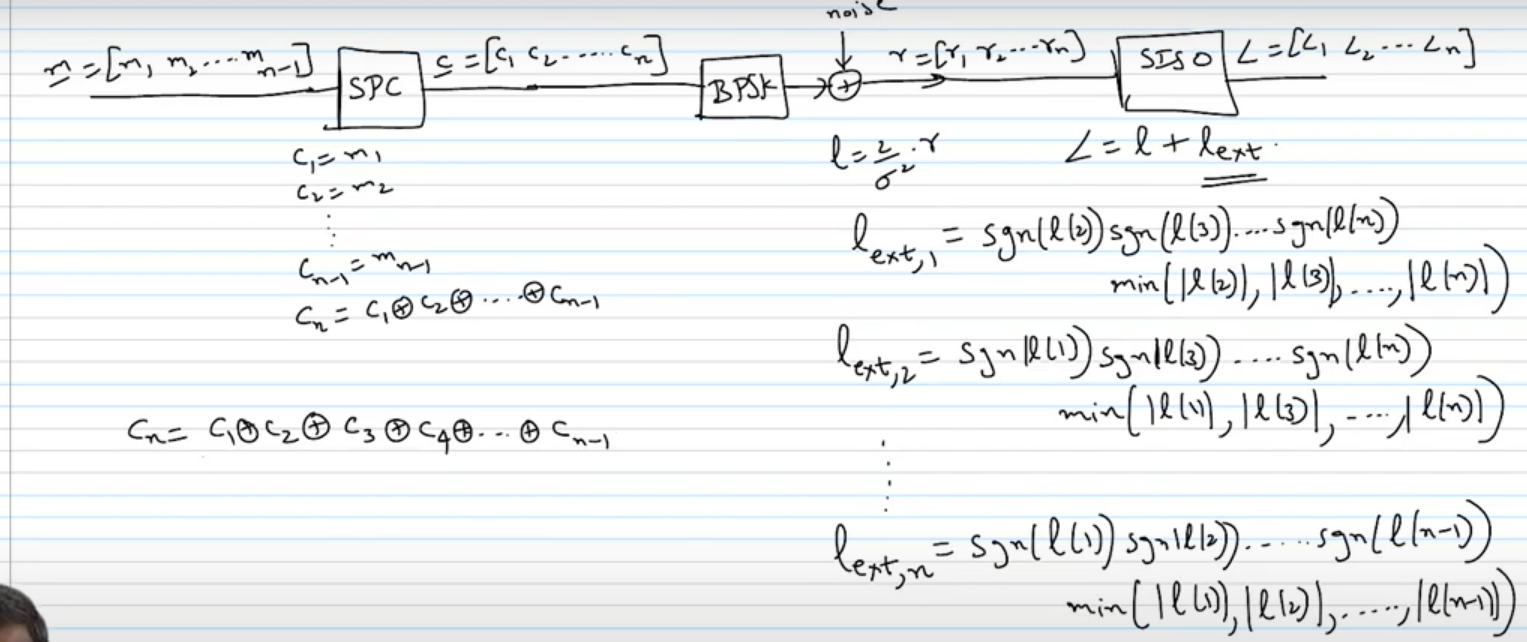 noise
m = [m₁ m₂ ..... m_{n-1}]
SPC
c = [c₁ c₂ ....... c_n]
BPSK
+
r = [r₁ r₂ ... r_n]
SISO
L = [L₁ L₂ ... L_n]
c₁ = m₁
c₂ = m₂
⋮
c_{n-1} = m_{n-1}
c_n = c₁ ⊕ c₂ ⊕ ..... ⊕ c_{n-1}
c_n = c₁ ⊕ c₂ ⊕ c₃ ⊕ c₄ ⊕ ... ⊕ c_{n-1}
l = 2/σ² · r
L = l + l_ext.
l_{ext,1} = sgn(l(2)) sgn(l(3)) ..... sgn(l(n))
min(|l(2)|, |l(3)|, ....., |l(n)|)
l_{ext,2} = sgn(l(1)) sgn(l(3)) ..... sgn(l(n))
min(|l(1)|, |l(3)|, ....., |l(n)|)
⋮
l_{ext,n} = sgn(l(1)) sgn(l(2)) ...... sgn(l(n-1))
min(|l(1)|, |l(2)|, ......, |l(n-1)|)